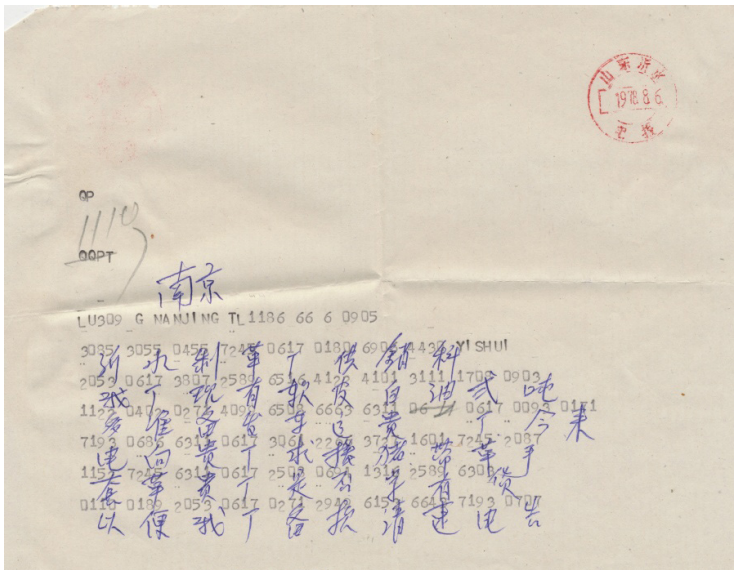 山东沂水
1978.8.6
电报
QP
QQPT
南京
LU309 G NANJING TL1186 66 6 0905
3055 0455 7245 0617 0180 4430 YISHUI
沂水制革厂供销科
2053 0617 3807 2589 6516 4126 4101 3111 1708 0903
我厂现有软皮白油弍吨
0402 0271 4099 6508 6663 6311 0617 0093 0171
准备发车送贵厂今来
7193 0686 6311 0617 3061 3721 1601 7245 2087
电向贵厂求援猪革手
1152 7245 6311 0617 2508 0694 1316 2589 6303
套革贵厂是否有货
0110 0189 2053 0617 0271 2948 6153 6643 7193 0707
以便我厂备款请速电告